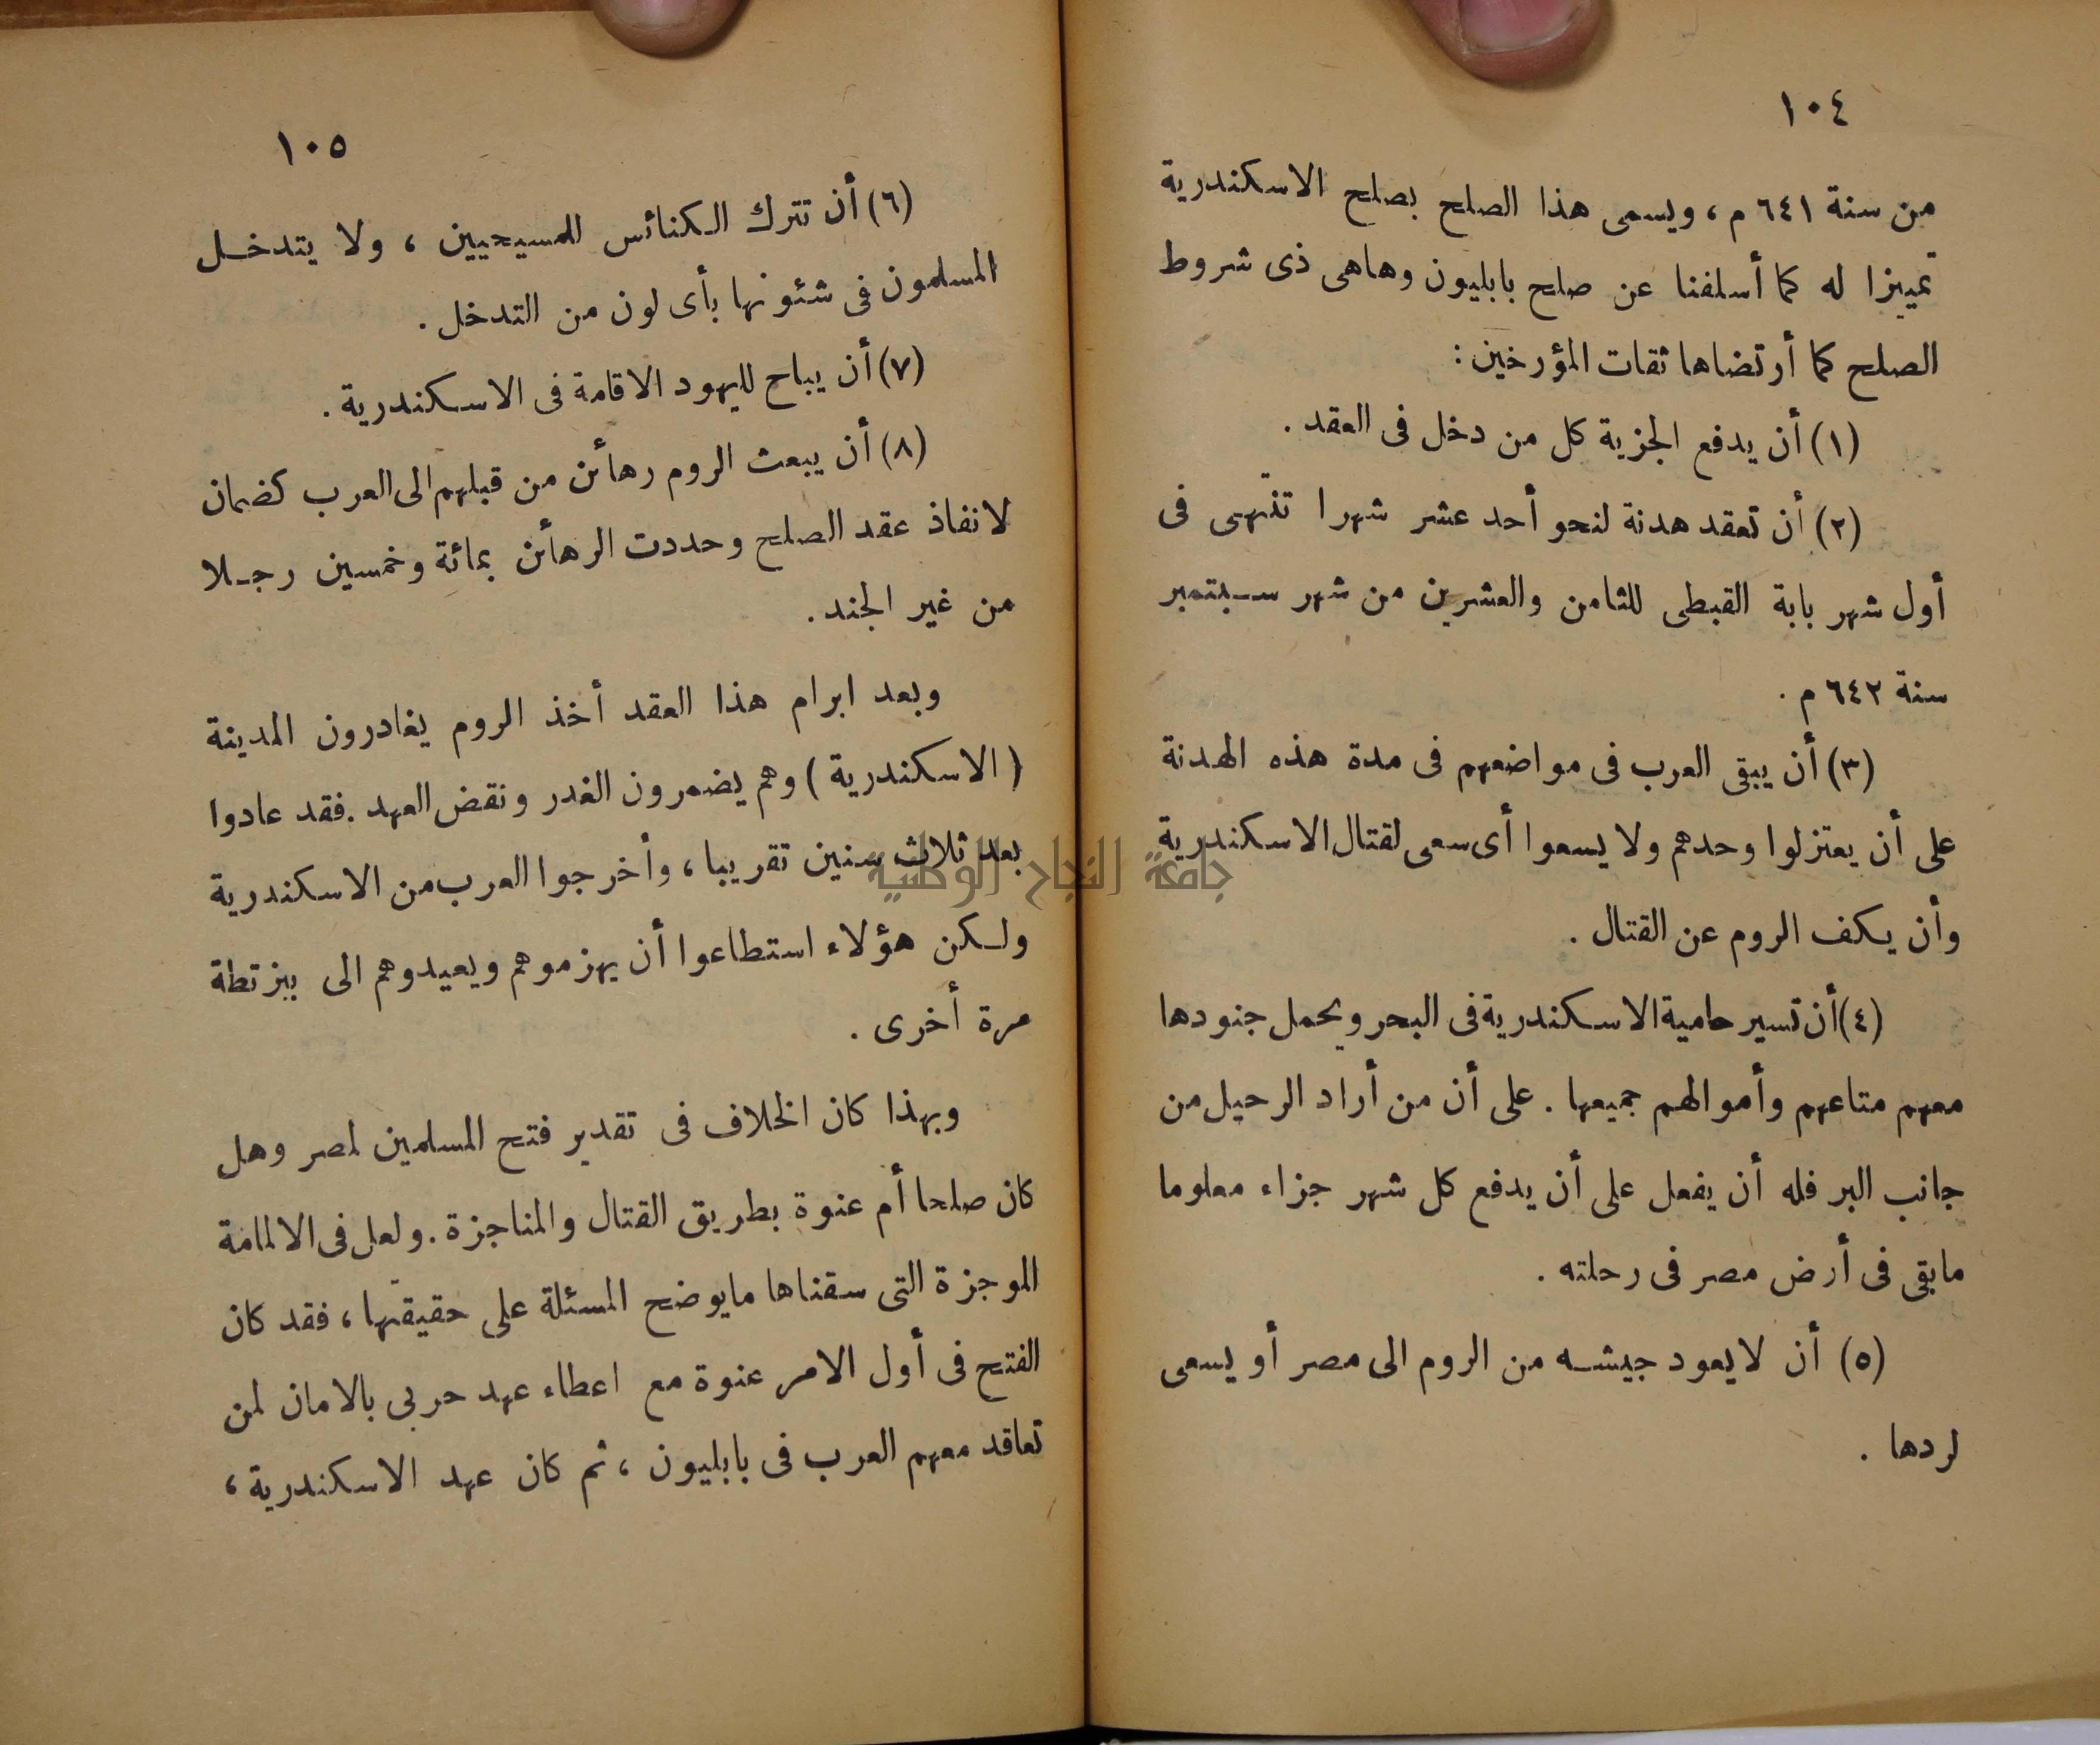 ١٠٤
من سنة ٦٤١ م، ويسمى هذا الصلح بصلح الاسكندرية
تمييزا له كما أسلفنا عن صلح بابليون وهاهى ذى شروط
الصلح كما أرتضاها ثقات المؤرخين:
(١) أن يدفع الجزية كل من دخل فى العقد.
(٢) أن تعقد هدنة لنحو أحد عشر شهرا تنتهى فى
أول شهر بابة القبطى للثامن والعشرين من شهر سبتمبر
سنة ٦٤٢ م.
(٣) أن يبقى العرب فى مواضعهم فى مدة هذه الهدنة
على أن يعتزلوا وحدهم ولا يسعوا أى سعى لقتال الاسكندرية
وأن يكف الروم عن القتال.
(٤) أن تسير حامية الاسكندرية فى البحر ويحمل جنودها
معهم متاعهم وأموالهم جميعها. على أن من أراد الرحيل من
جانب البر فله أن يفعل على أن يدفع كل شهر جزاء معلوما
مابقى فى أرض مصر فى رحلته.
(٥) أن لايعود جيشه من الروم الى مصر أو يسعى
لردها.
١٠٥
(٦) أن تترك الكنائس للمسيحيين، ولا يتدخل
المسلمون فى شئونها بأى لون من التدخل.
(٧) أن يباح لليهود الاقامة فى الاسكندرية.
(٨) أن يبعث الروم رهأئن من قبلهم الى العرب كضمان
لانفاذ عقد الصلح وحددت الرهأئن بمائة وخمسين رجلا
من غير الجند.
وبعد ابرام هذا العقد أخذ الروم يغادرون المدينة
(الاسكندرية) وهم يضمرون الغدر ونقض العهد. فقد عادوا
بعد ثلاث سنين تقريبا، وأخرجوا العرب من الاسكندرية
ولكن هؤلاء استطاعوا أن يهزموهم ويعيدوهم الى بيزنطة
مرة أخرى.
وبهذا كان الخلاف فى تقدير فتح المسلمين لمصر وهل
كان صلحا أم عنوة بطريق القتال والمناجزة. ولعل فى الالمامة
الموجزة التى سقناها مايوضح المسئلة على حقيقتها، فقد كان
الفتح فى أول الامر عنوة مع اعطاء عهد حربى بالامان لمن
تعاقد معهم العرب فى بابليون، ثم كان عهد الاسكندرية،
جامعة النجاح الوطنية